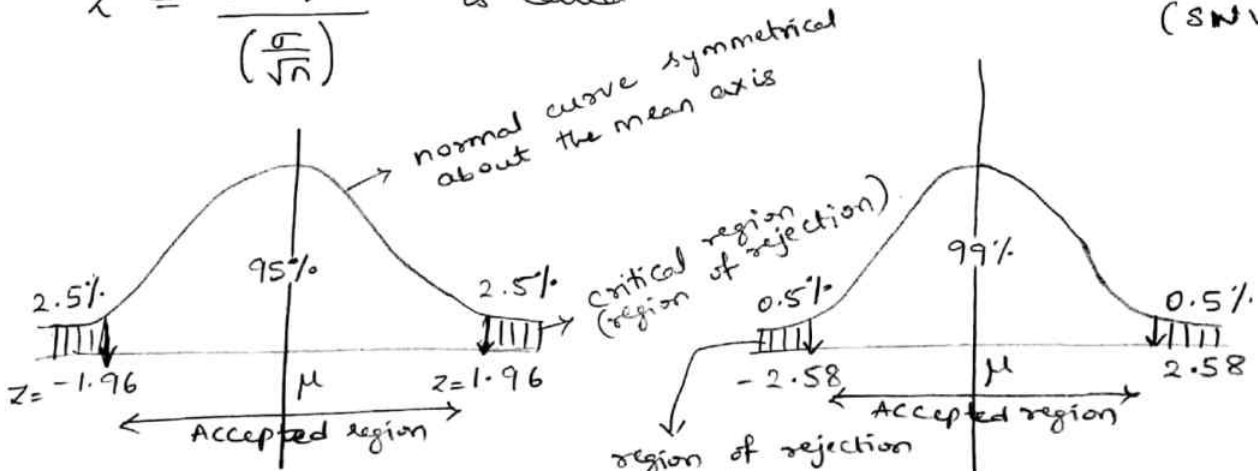 z = ——— is called
(σ/√n)
(SNV
normal curve symmetrical
about the mean axis
95%
2.5%
2.5%
critical region
(region of rejection).
Z= -1.96
μ
z=1.96
Accepted region
99%
0.5%
0.5%
-2.58
μ
2.58
Accepted region
region of rejection